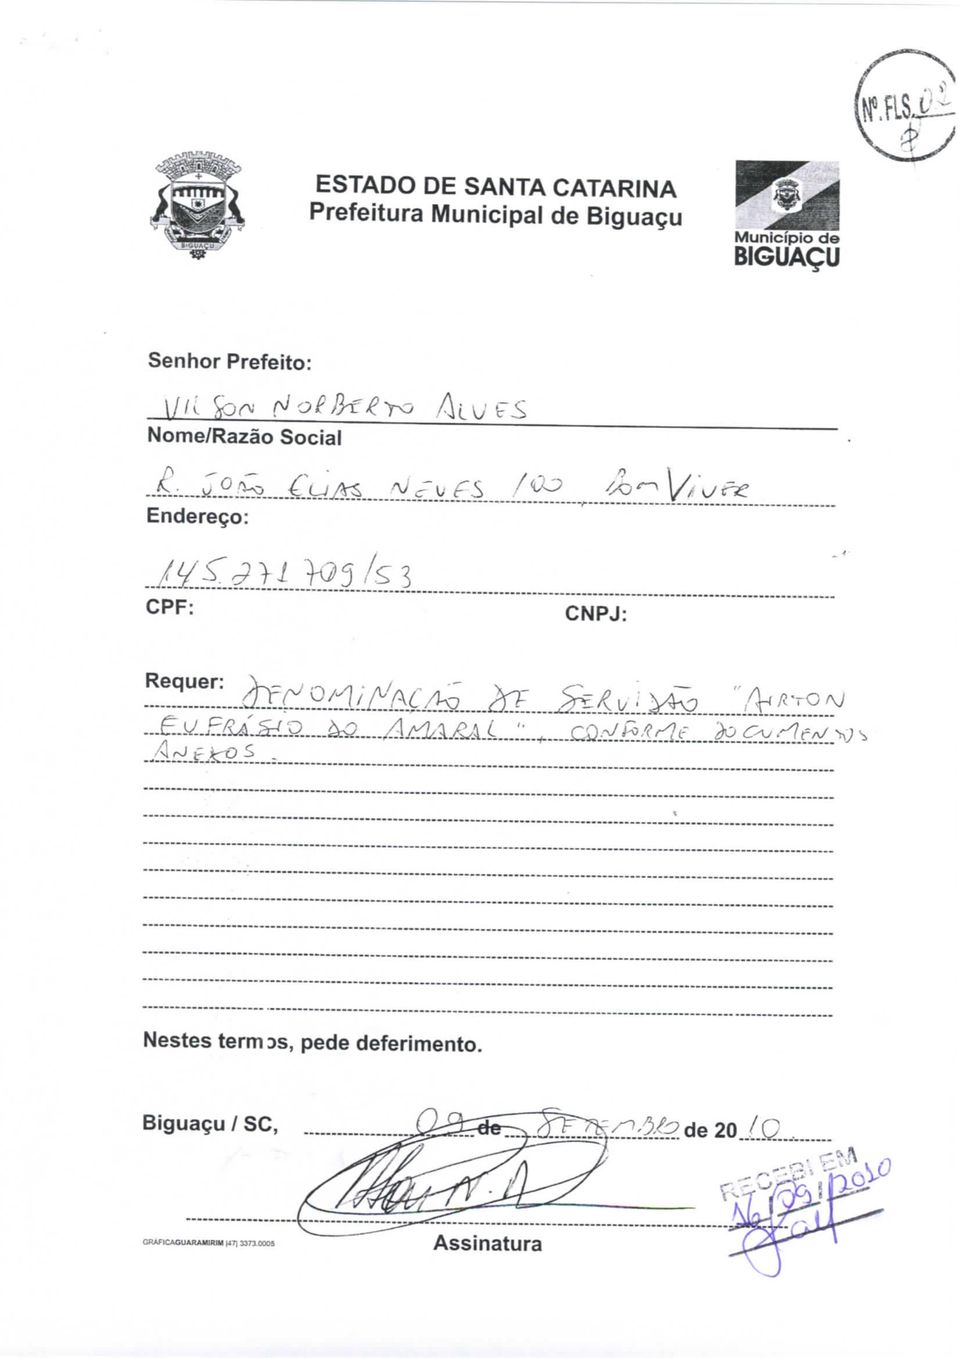 Nº. FLS. 02
ESTADO DE SANTA CATARINA
Prefeitura Municipal de Biguaçu
BIGUAÇU
Município de
BIGUAÇU
Senhor Prefeito:
VILSON NORBERTO ALVES
Nome/Razão Social
R. JOÃO ELIAS NEVES 100 BOM VIVER
Endereço:
145.271 709/53
CPF: CNPJ:
Requer: DENOMINAÇÃO DE SERVIDÃO "AIRTON
EUFRÁSIO DO AMARAL", CONFORME DOCUMENTOS
ANEXOS.
Nestes termos, pede deferimento.
Biguaçu / SC, 09 de SETEMBRO de 2010.
RECEBI EM
16/09/2010
Assinatura
GRAFICAGUARAMIRIM |47| 3373.0005